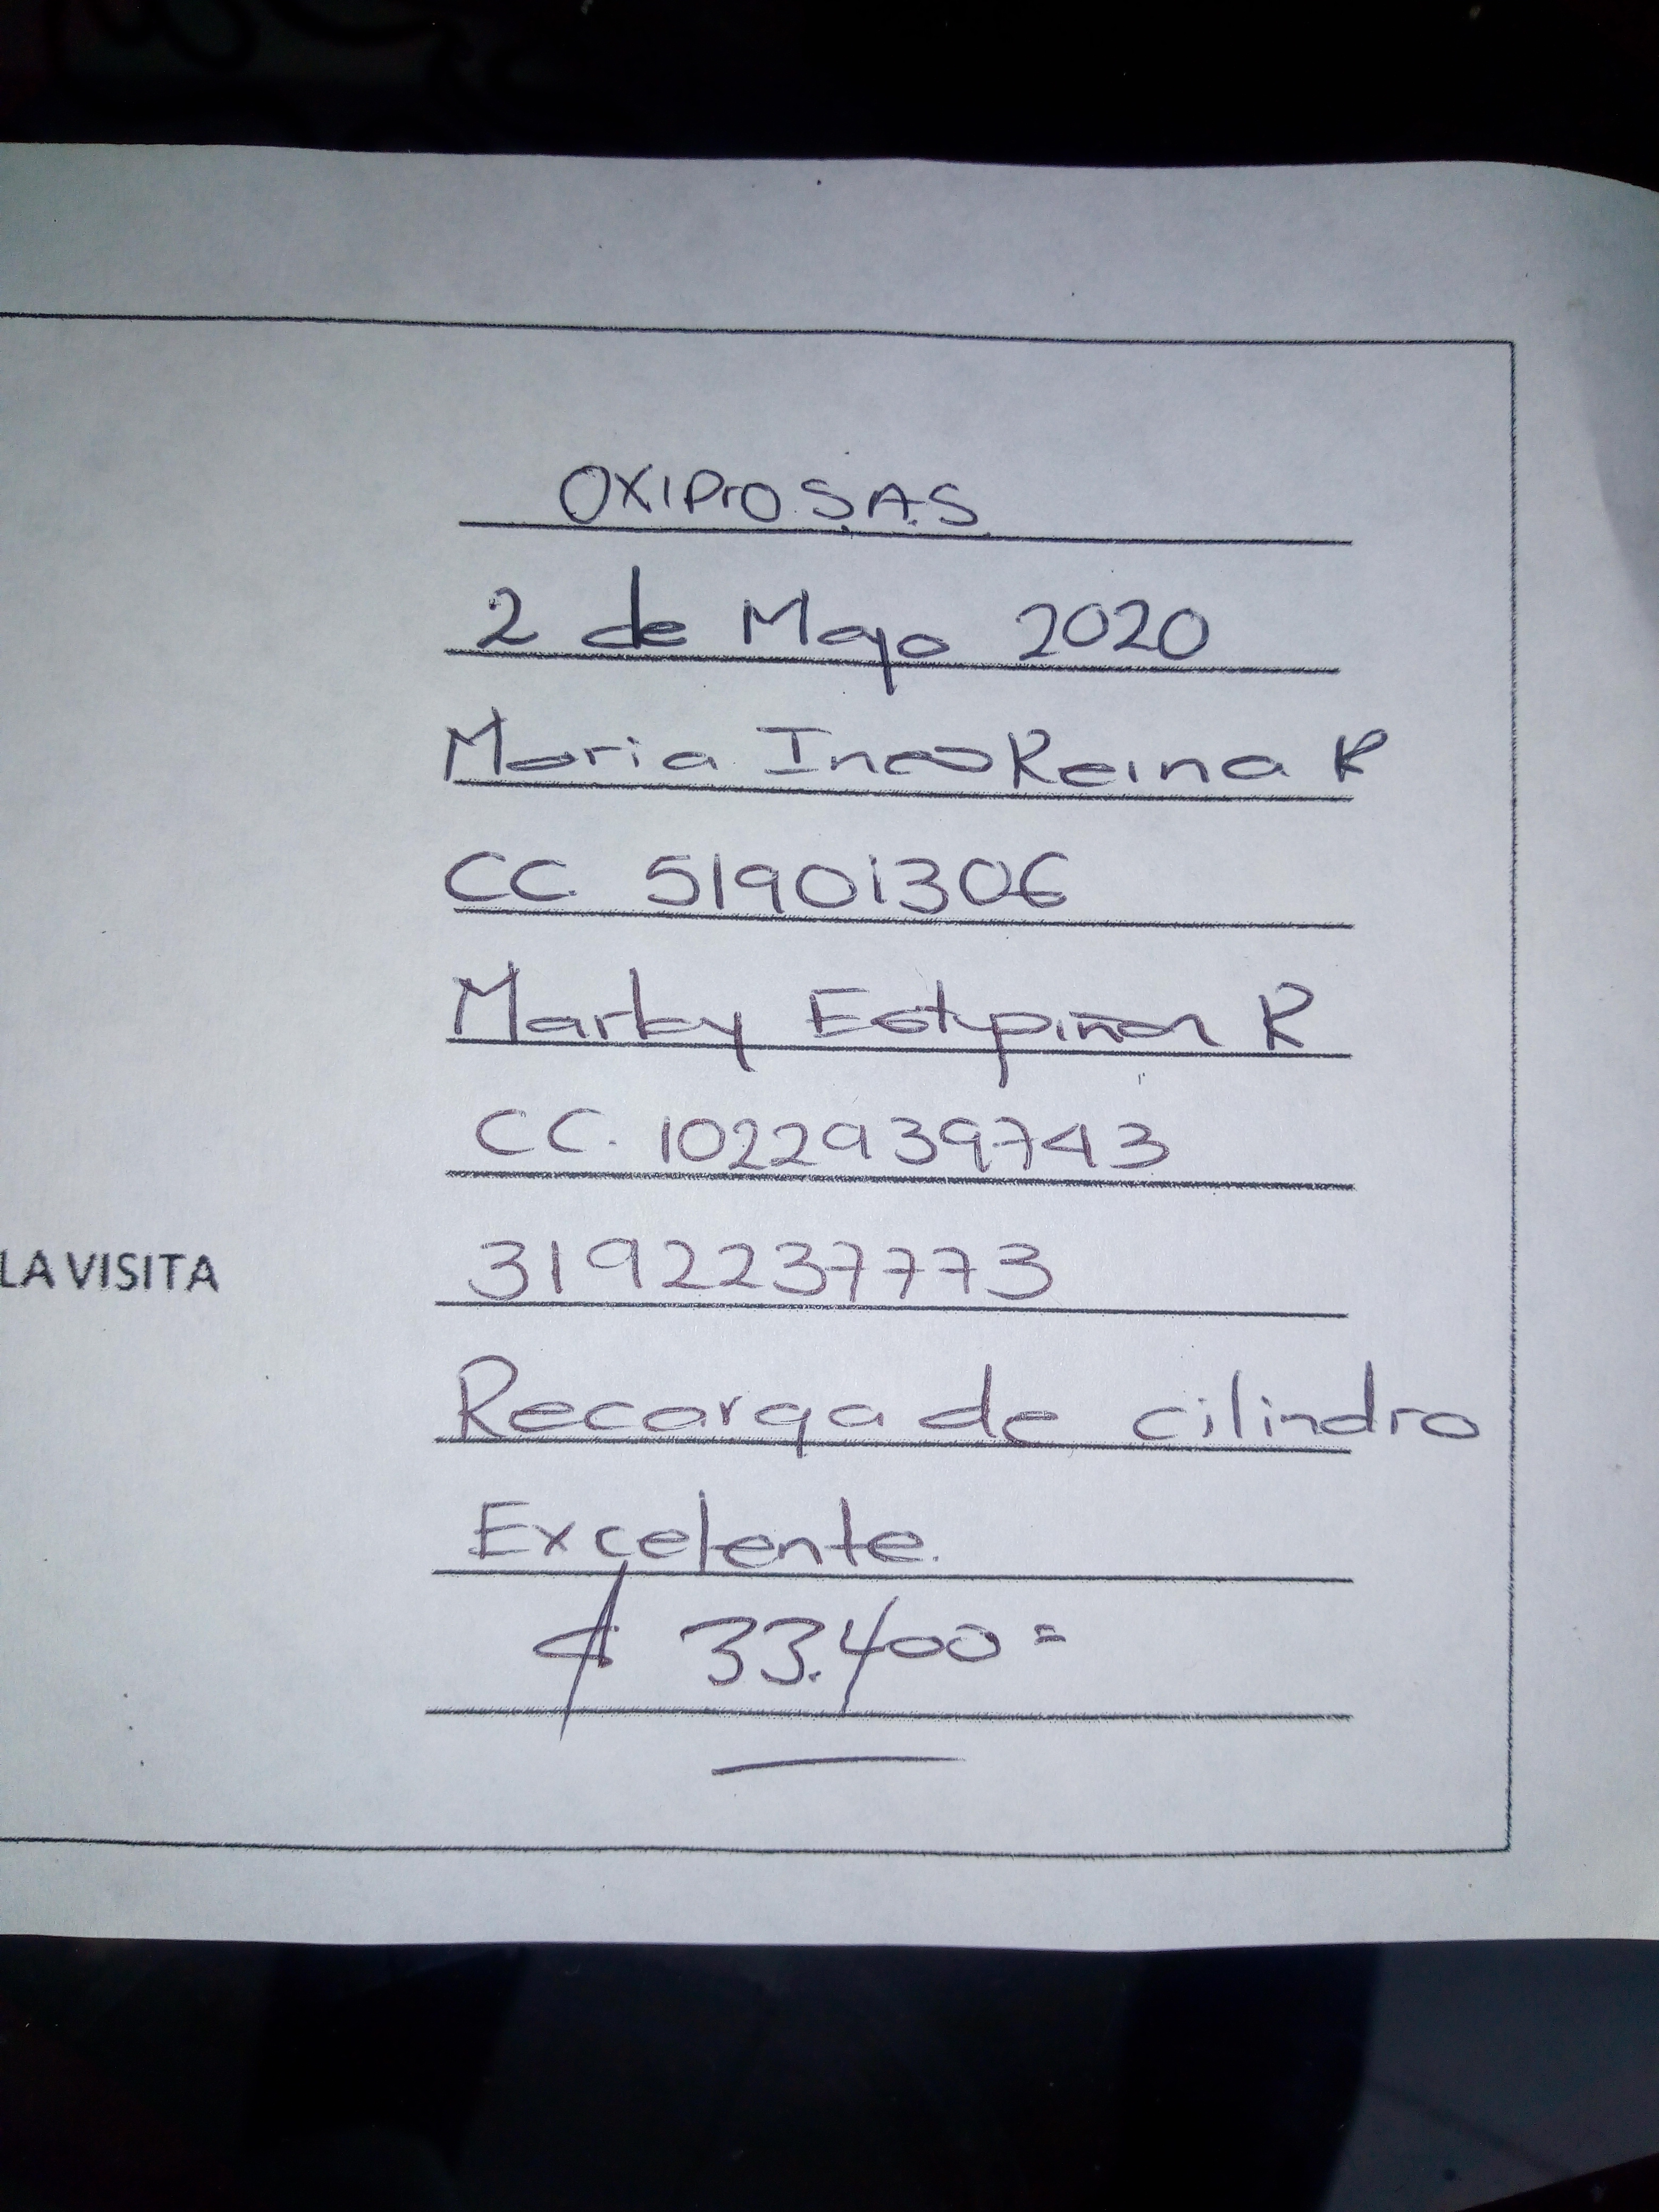 OXIPrO S.A.S
2 de Mayo 2020
Maria Ines Reina R
CC. 51901306
Marby Estupiñan R
CC. 1022939743
LA VISITA 3192237773
Recarga de cilindro
Excelente.
$ 33.400=